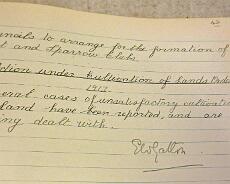 42
uncils to arrange for the formation of
t and Sparrow Clubs.
ction under Cultivation of Lands Order
1917.
eral cases of unsatisfactory cultivation
land have been reported, and are
ing dealt with.